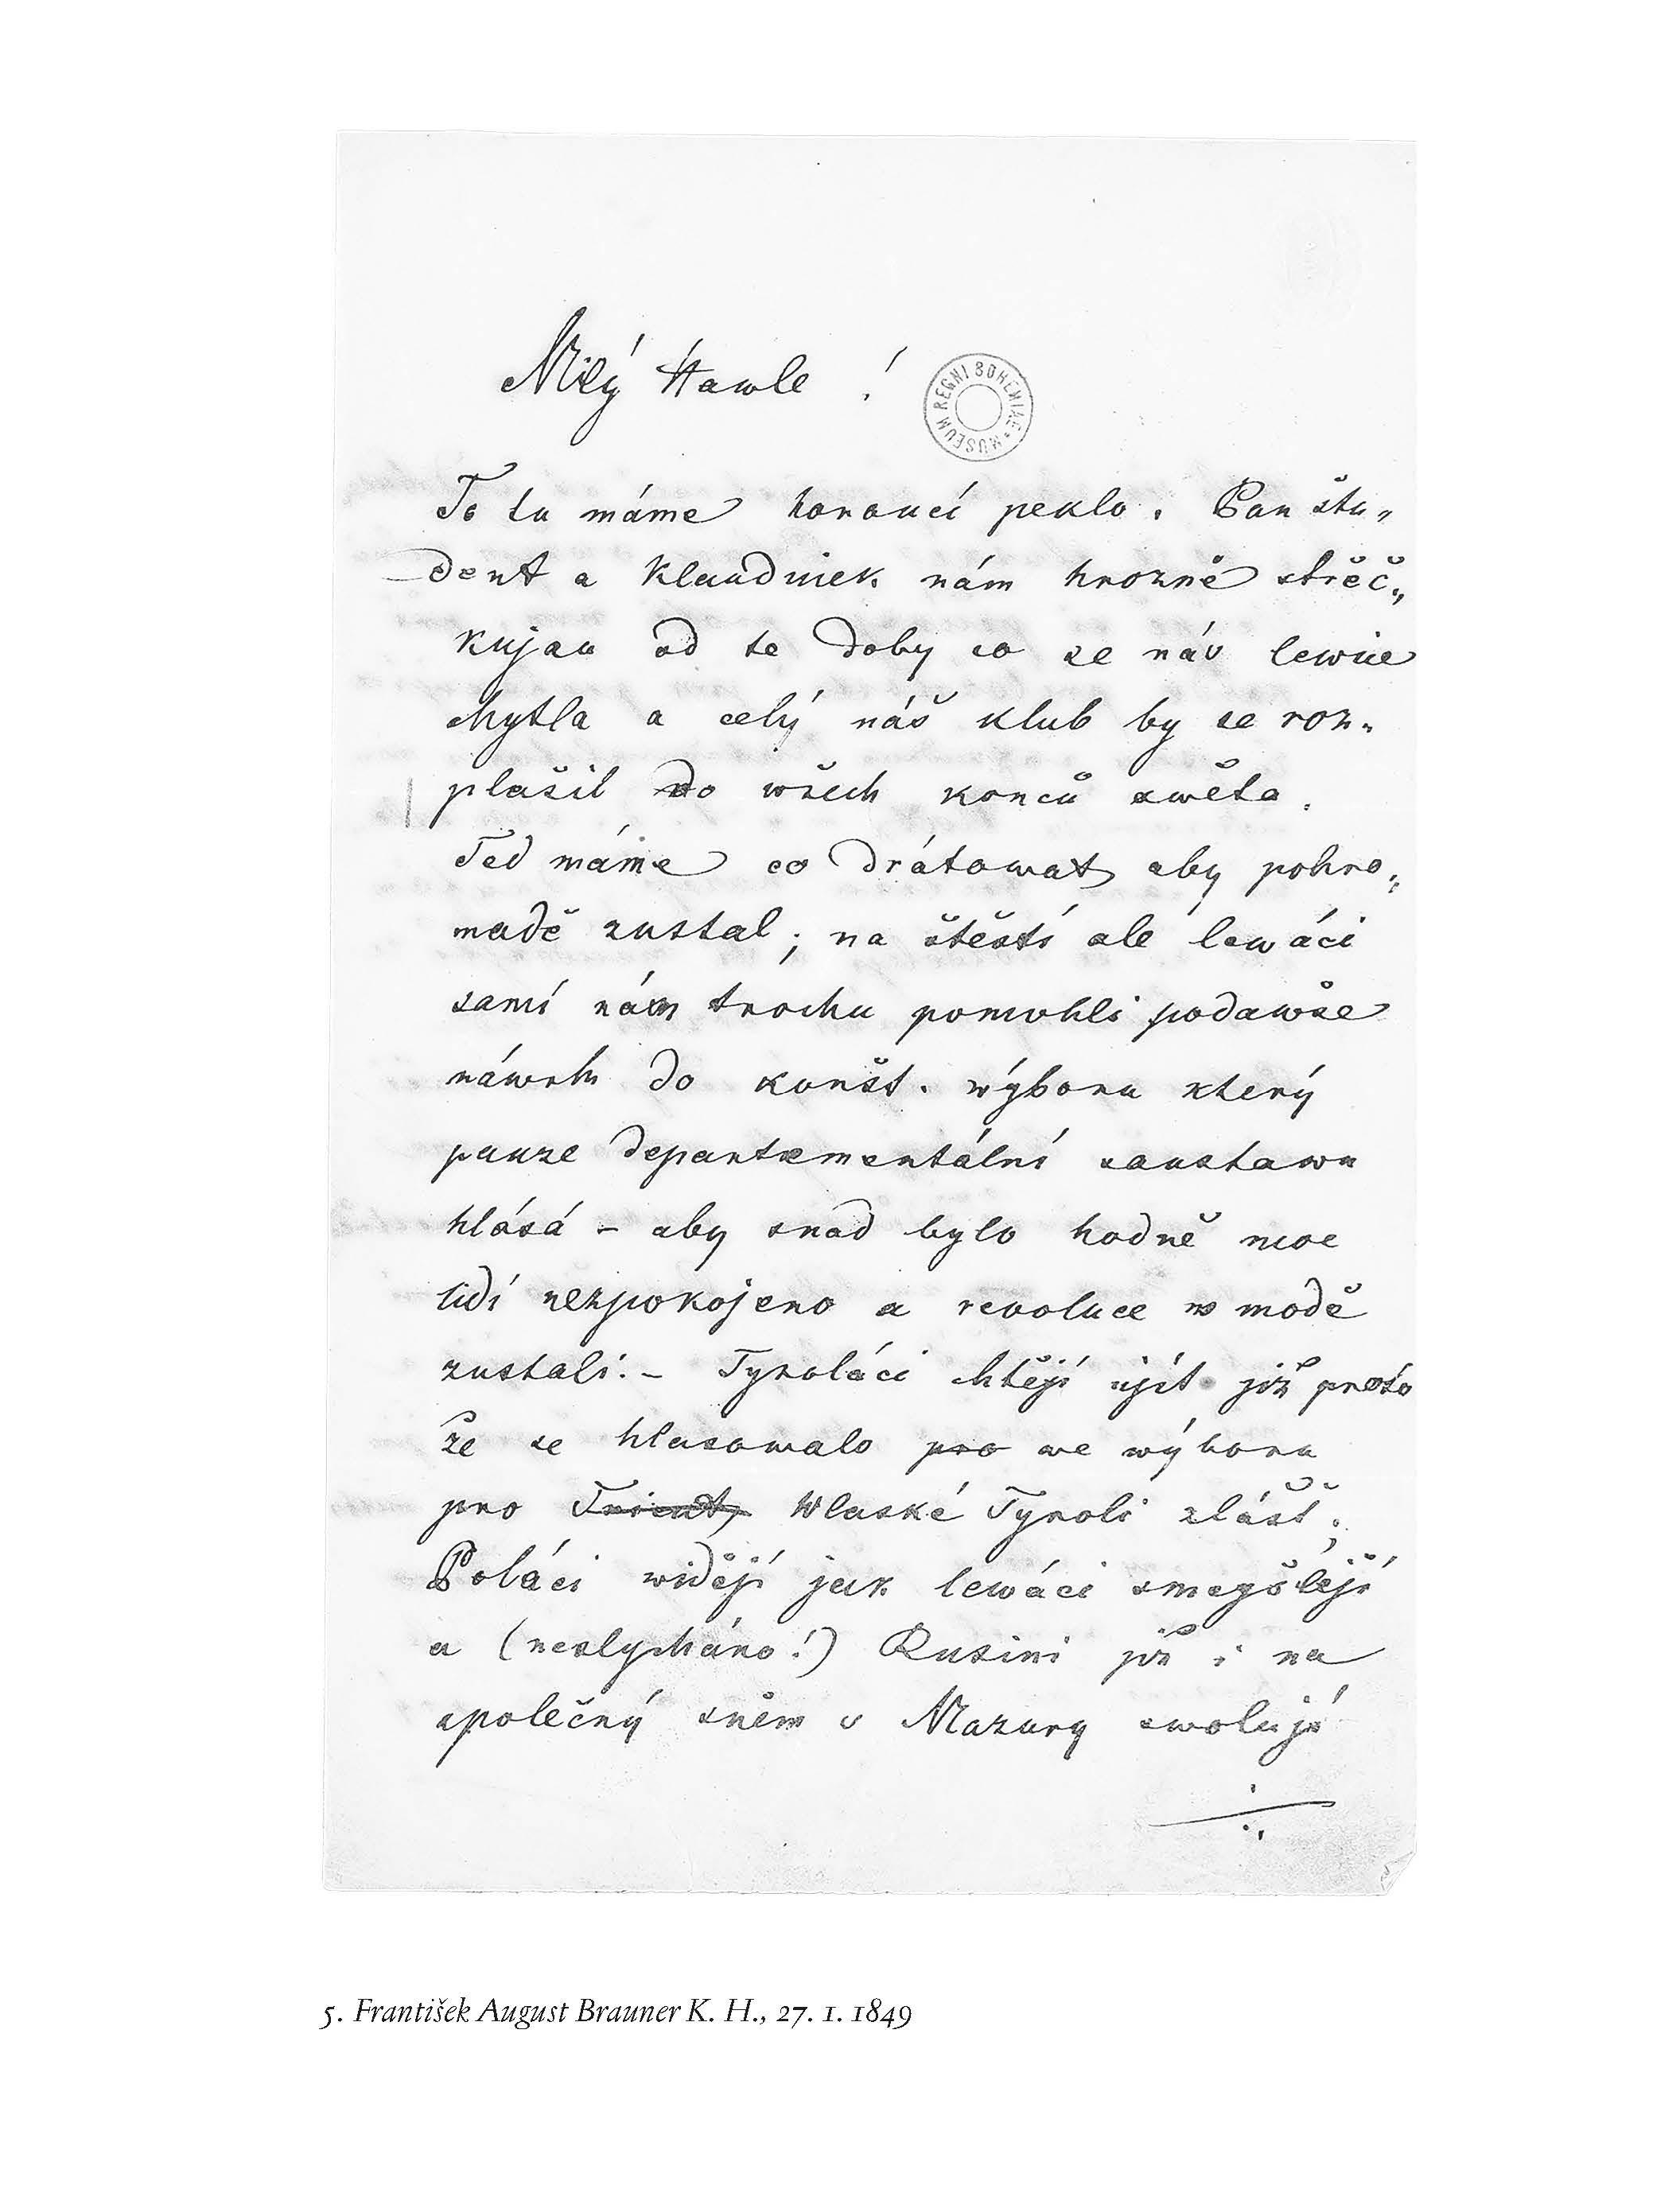 Milý Hawle!
MUSEUM REGNI BOHEMIAE
To tu máme horoucí peklo. Pan štu„
dent a Klaudinek nám hrozně střeč„
kujau od te doby co se náš lewice
chytla a celý náš klub by se roz„
plašil do wšech konců swěta.
Teď máme co drátowat aby pohro„
madě zustal; na štěstí ale lewáci
samí nám trochu pomohli podawše
náwrh do konšt. wýboru který
pauze departementální saustawu
hlásá – aby snad bylo hodně moc
lidí nezpokojeno a revoluce w modě
zustali. – Tyroláci chtějí újít již proto
že se hlasowalo pro we wýboru
pro Trient, Wlaské Tyroli zlášť;
Poláci widějí jak lewáci smeyšlejí
a (neslycháno!) Rusíni již i na
společný sněm s Mazury swolují
5. František August Brauner K. H., 27. 1. 1849